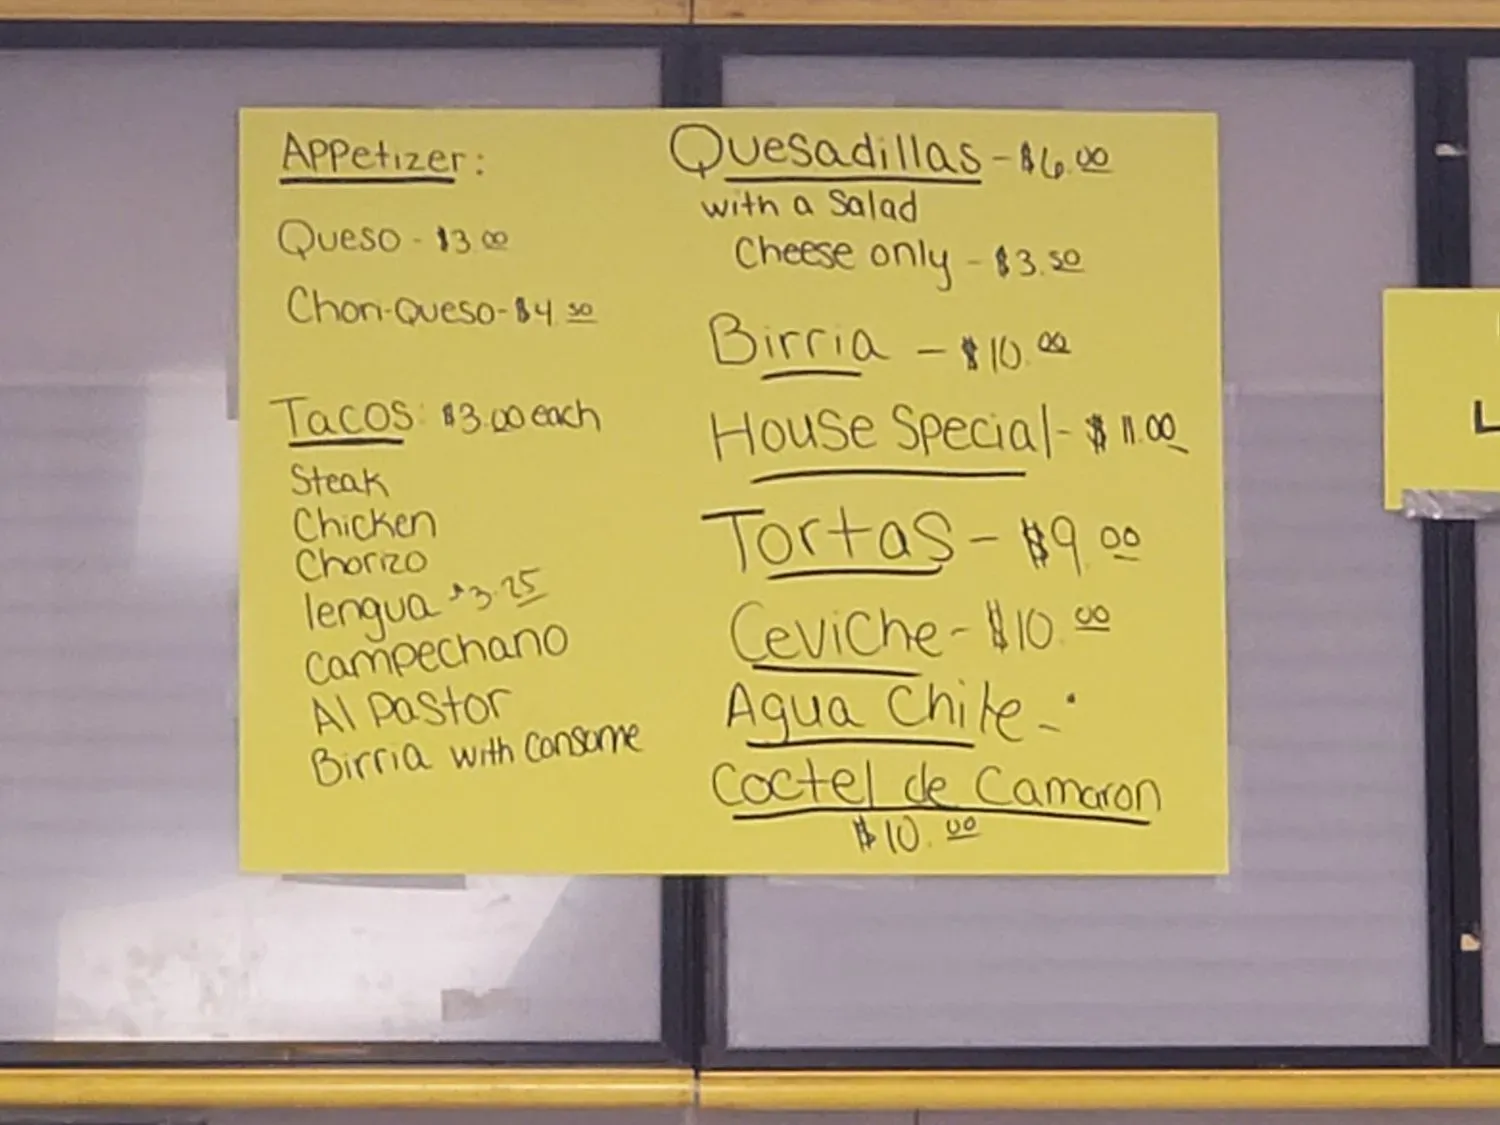 Appetizer:
Queso - $3.00
Chori-Queso - $4.50
Tacos: $3.00 each
Steak
Chicken
Chorizo
lengua $3.25
Campechano
Al Pastor
Birria with Consome
Quesadillas - $6.00
with a Salad
Cheese only - $3.50
Birria - $10.00
House Special - $11.00
Tortas - $9.00
Ceviche - $10.00
Agua Chile -
Coctel de Camaron
$10.00